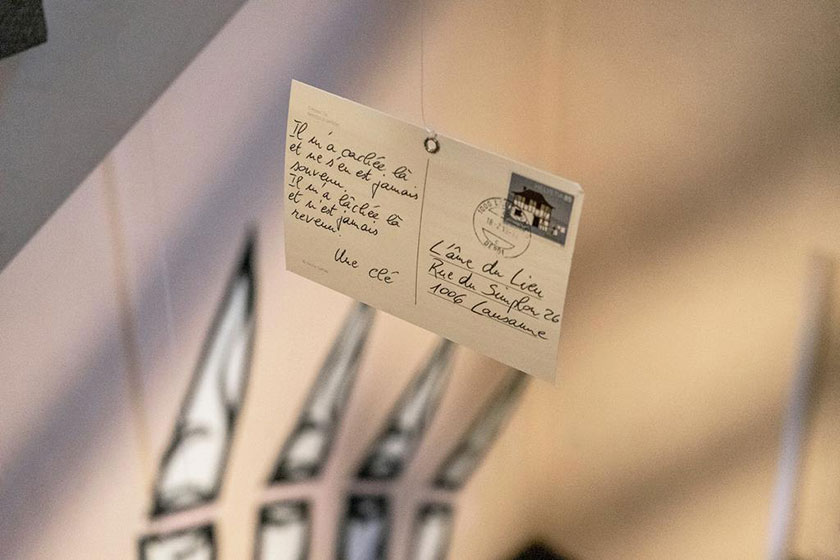 Il m'a cachée là
et ne s'en est jamais
souvenu.
Il m'a lâchée là
et n'est jamais
revenu.
Une clé
HELVETIA 85
1000
L'âme du Lieu
Rue du Simplon 26
1006 Lausanne